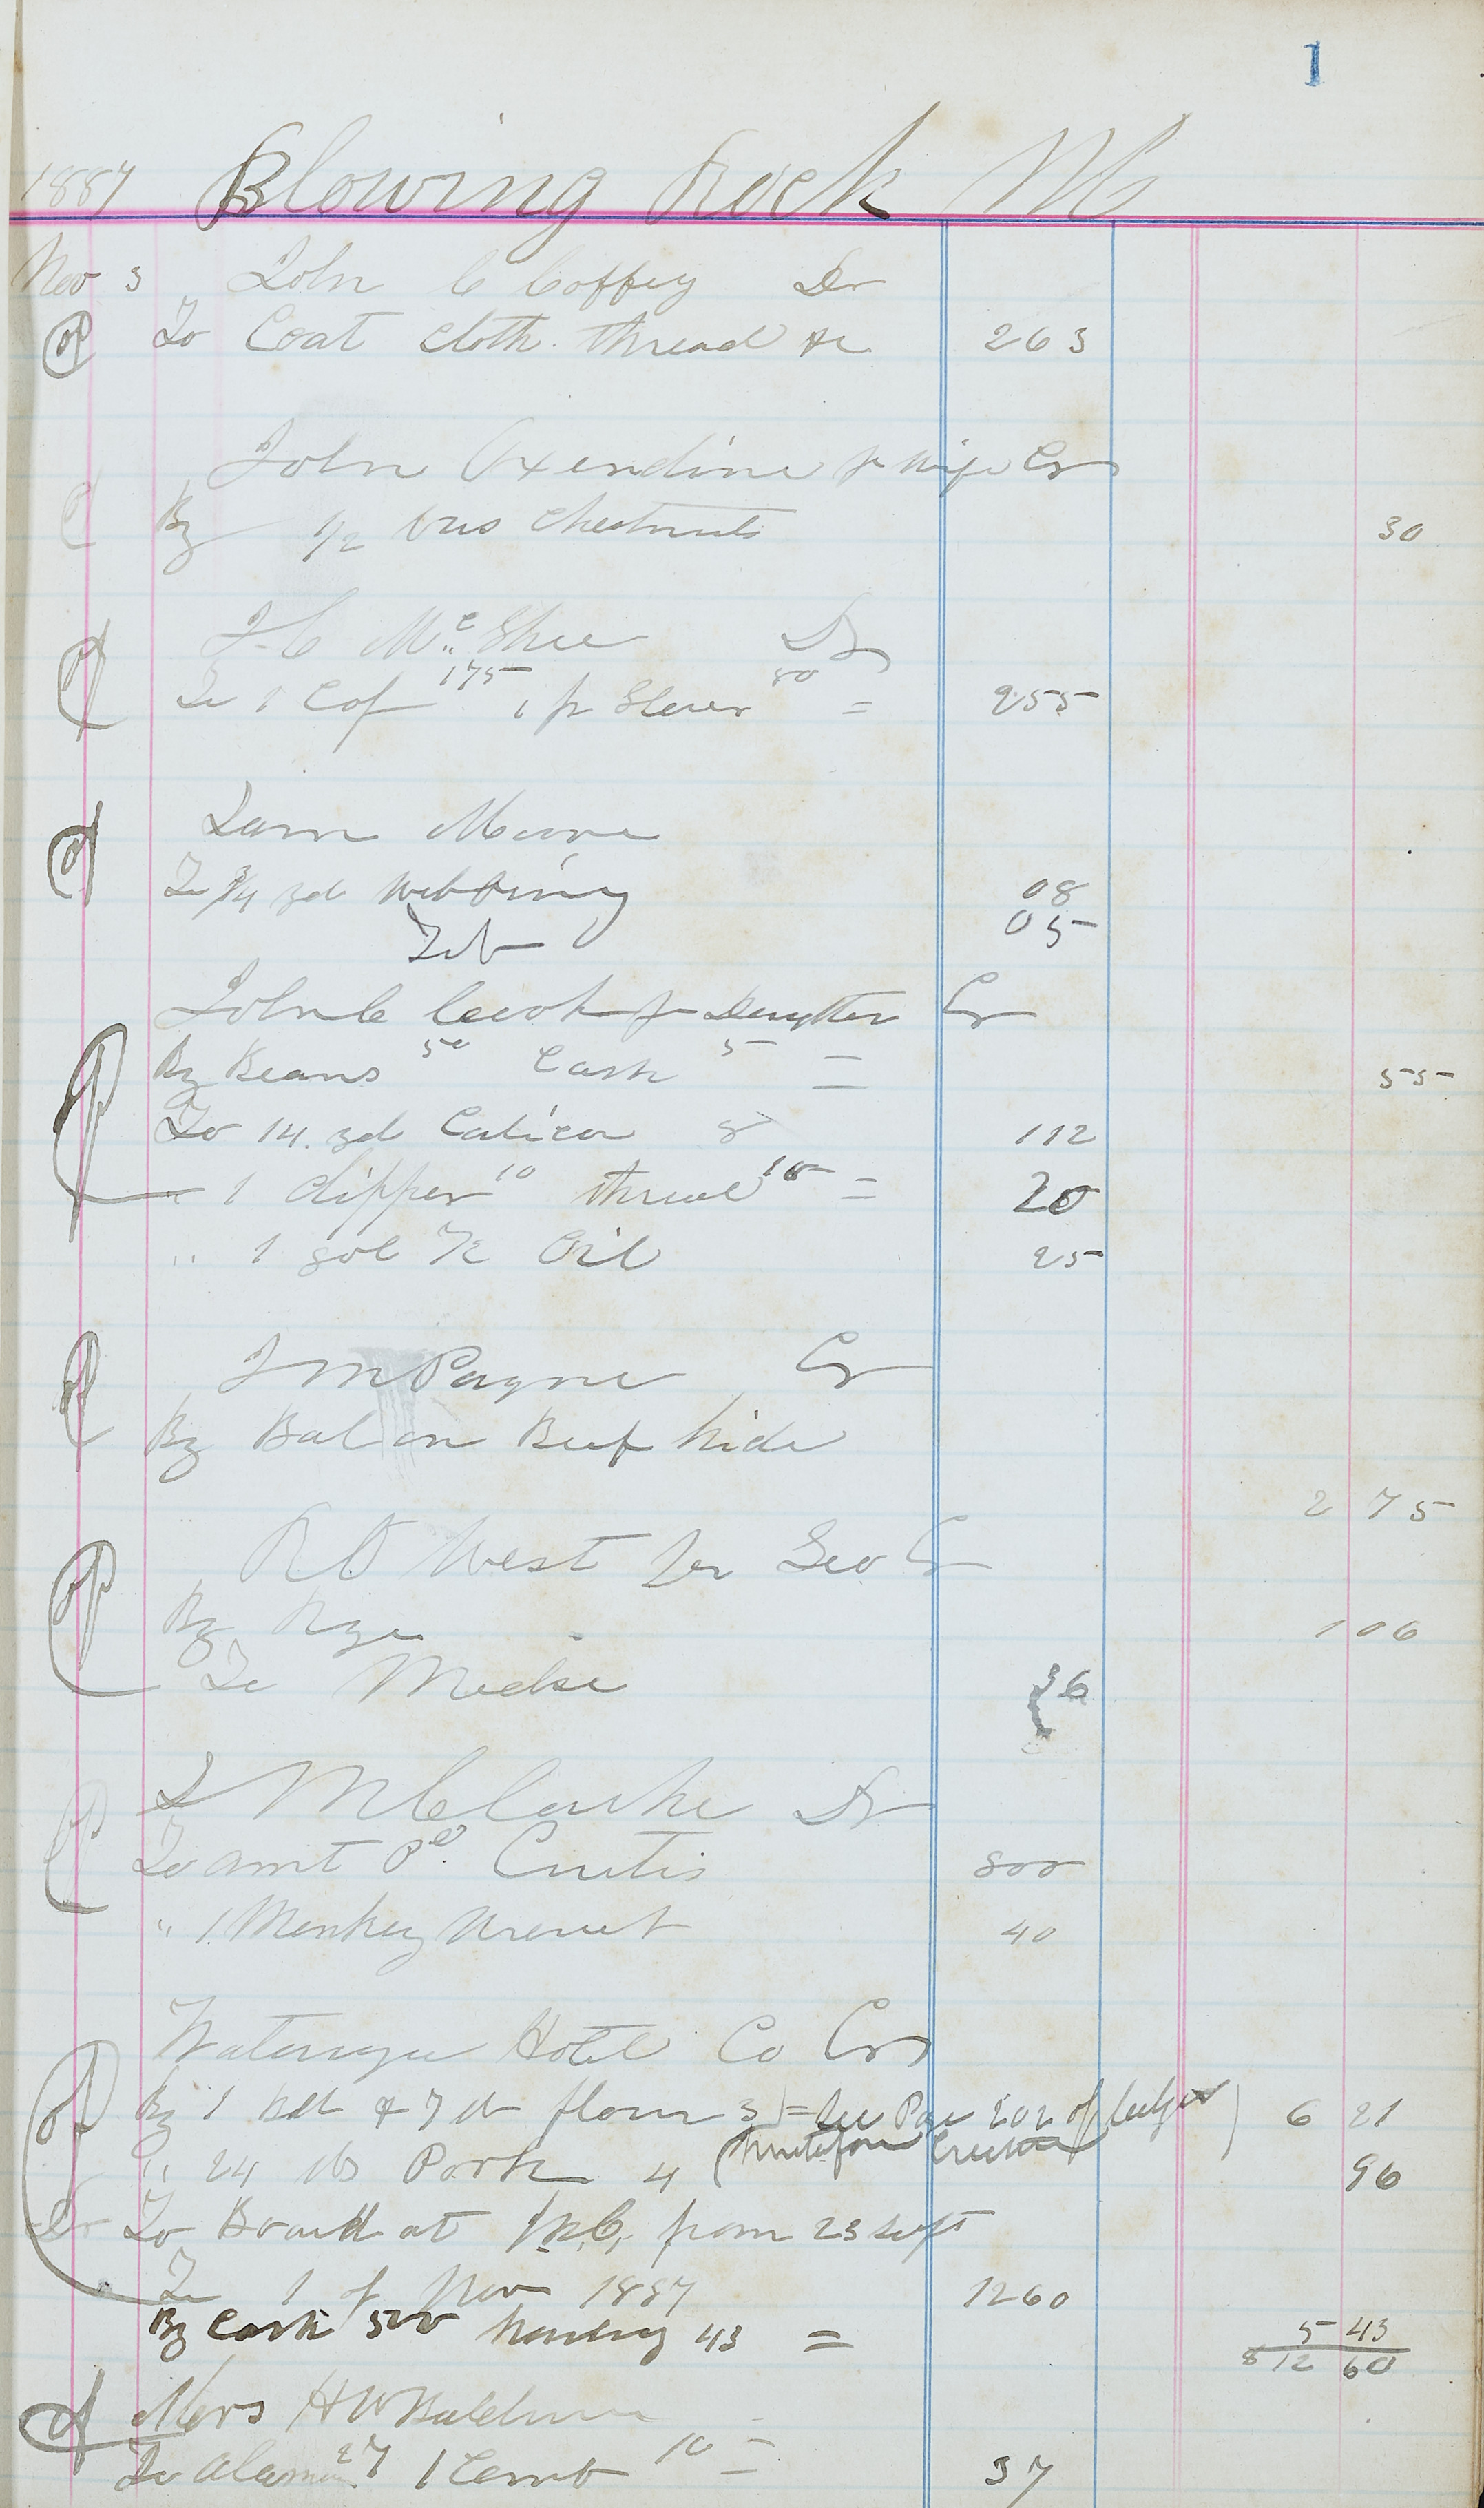 1
1887 Blowing Rock NC
Nov 3 John C Coffey Dr
To Coat cloth thread &c 263
John Oxendine pr wife Cr
By 1/2 bus Chestnuts 30
J C McGhee Dr
To 1 Cof 175 1 pr 80 = 255
Sam Moore
To 3/4 yd Webbing 08
05
John C Cook pr Daughter Cr
By Beans 50 Cash 5 = 55
To 14 yd Calico 8 112
" 1 dipper 10 thread 10 = 20
" 1 gal K Oil 25
J M Payne Cr
By Bal on Beef hide
2 75
R O West per Geo Cr
By Rye 1 06
To Mdse 36
J M Clarke Dr
To amt Pd. Curtis 800
" 1 Monkey Wrench 40
Watauga Hotel Co Cr
By 1 bbl & 7 lb flour 3 = See Page 202 of ledger 6 21
" 24 lbs Pork 4 96
Dr To Board at from 23 Sept
To 1 of Nov 1887 1260
By Cash 500 43 = 5 43
$12 60
Mrs H W Baldwin
To 27 1 Comb 10 = 37